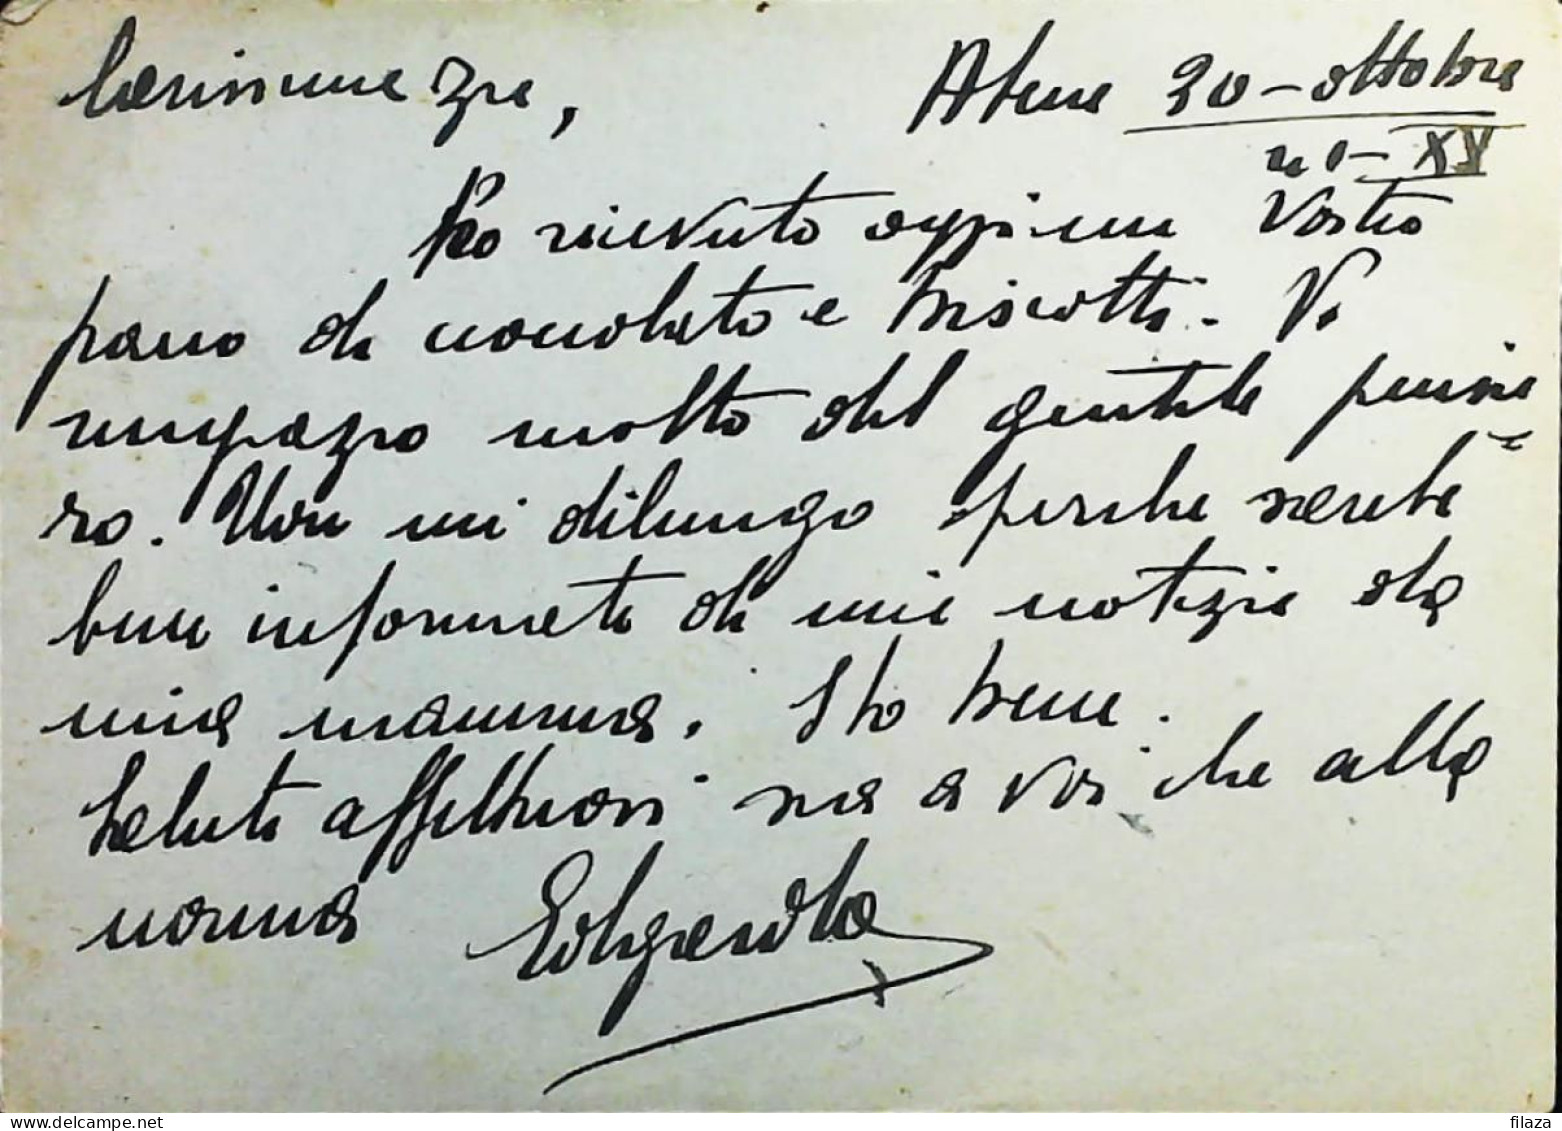 Carissime zie, Atene 20-ottobre
XX-
Ho ricevuto oggi un Vostro
pacco di cioccolato e biscotti. Vi
ringrazio molto del gentile pensie
ro. Non mi dilungo perche sarete
bene informate di mie notizie da
mia mamma. Sto bene.
Saluti affettuosi sia a voi che alla
nonna
delcampe.net
filaza